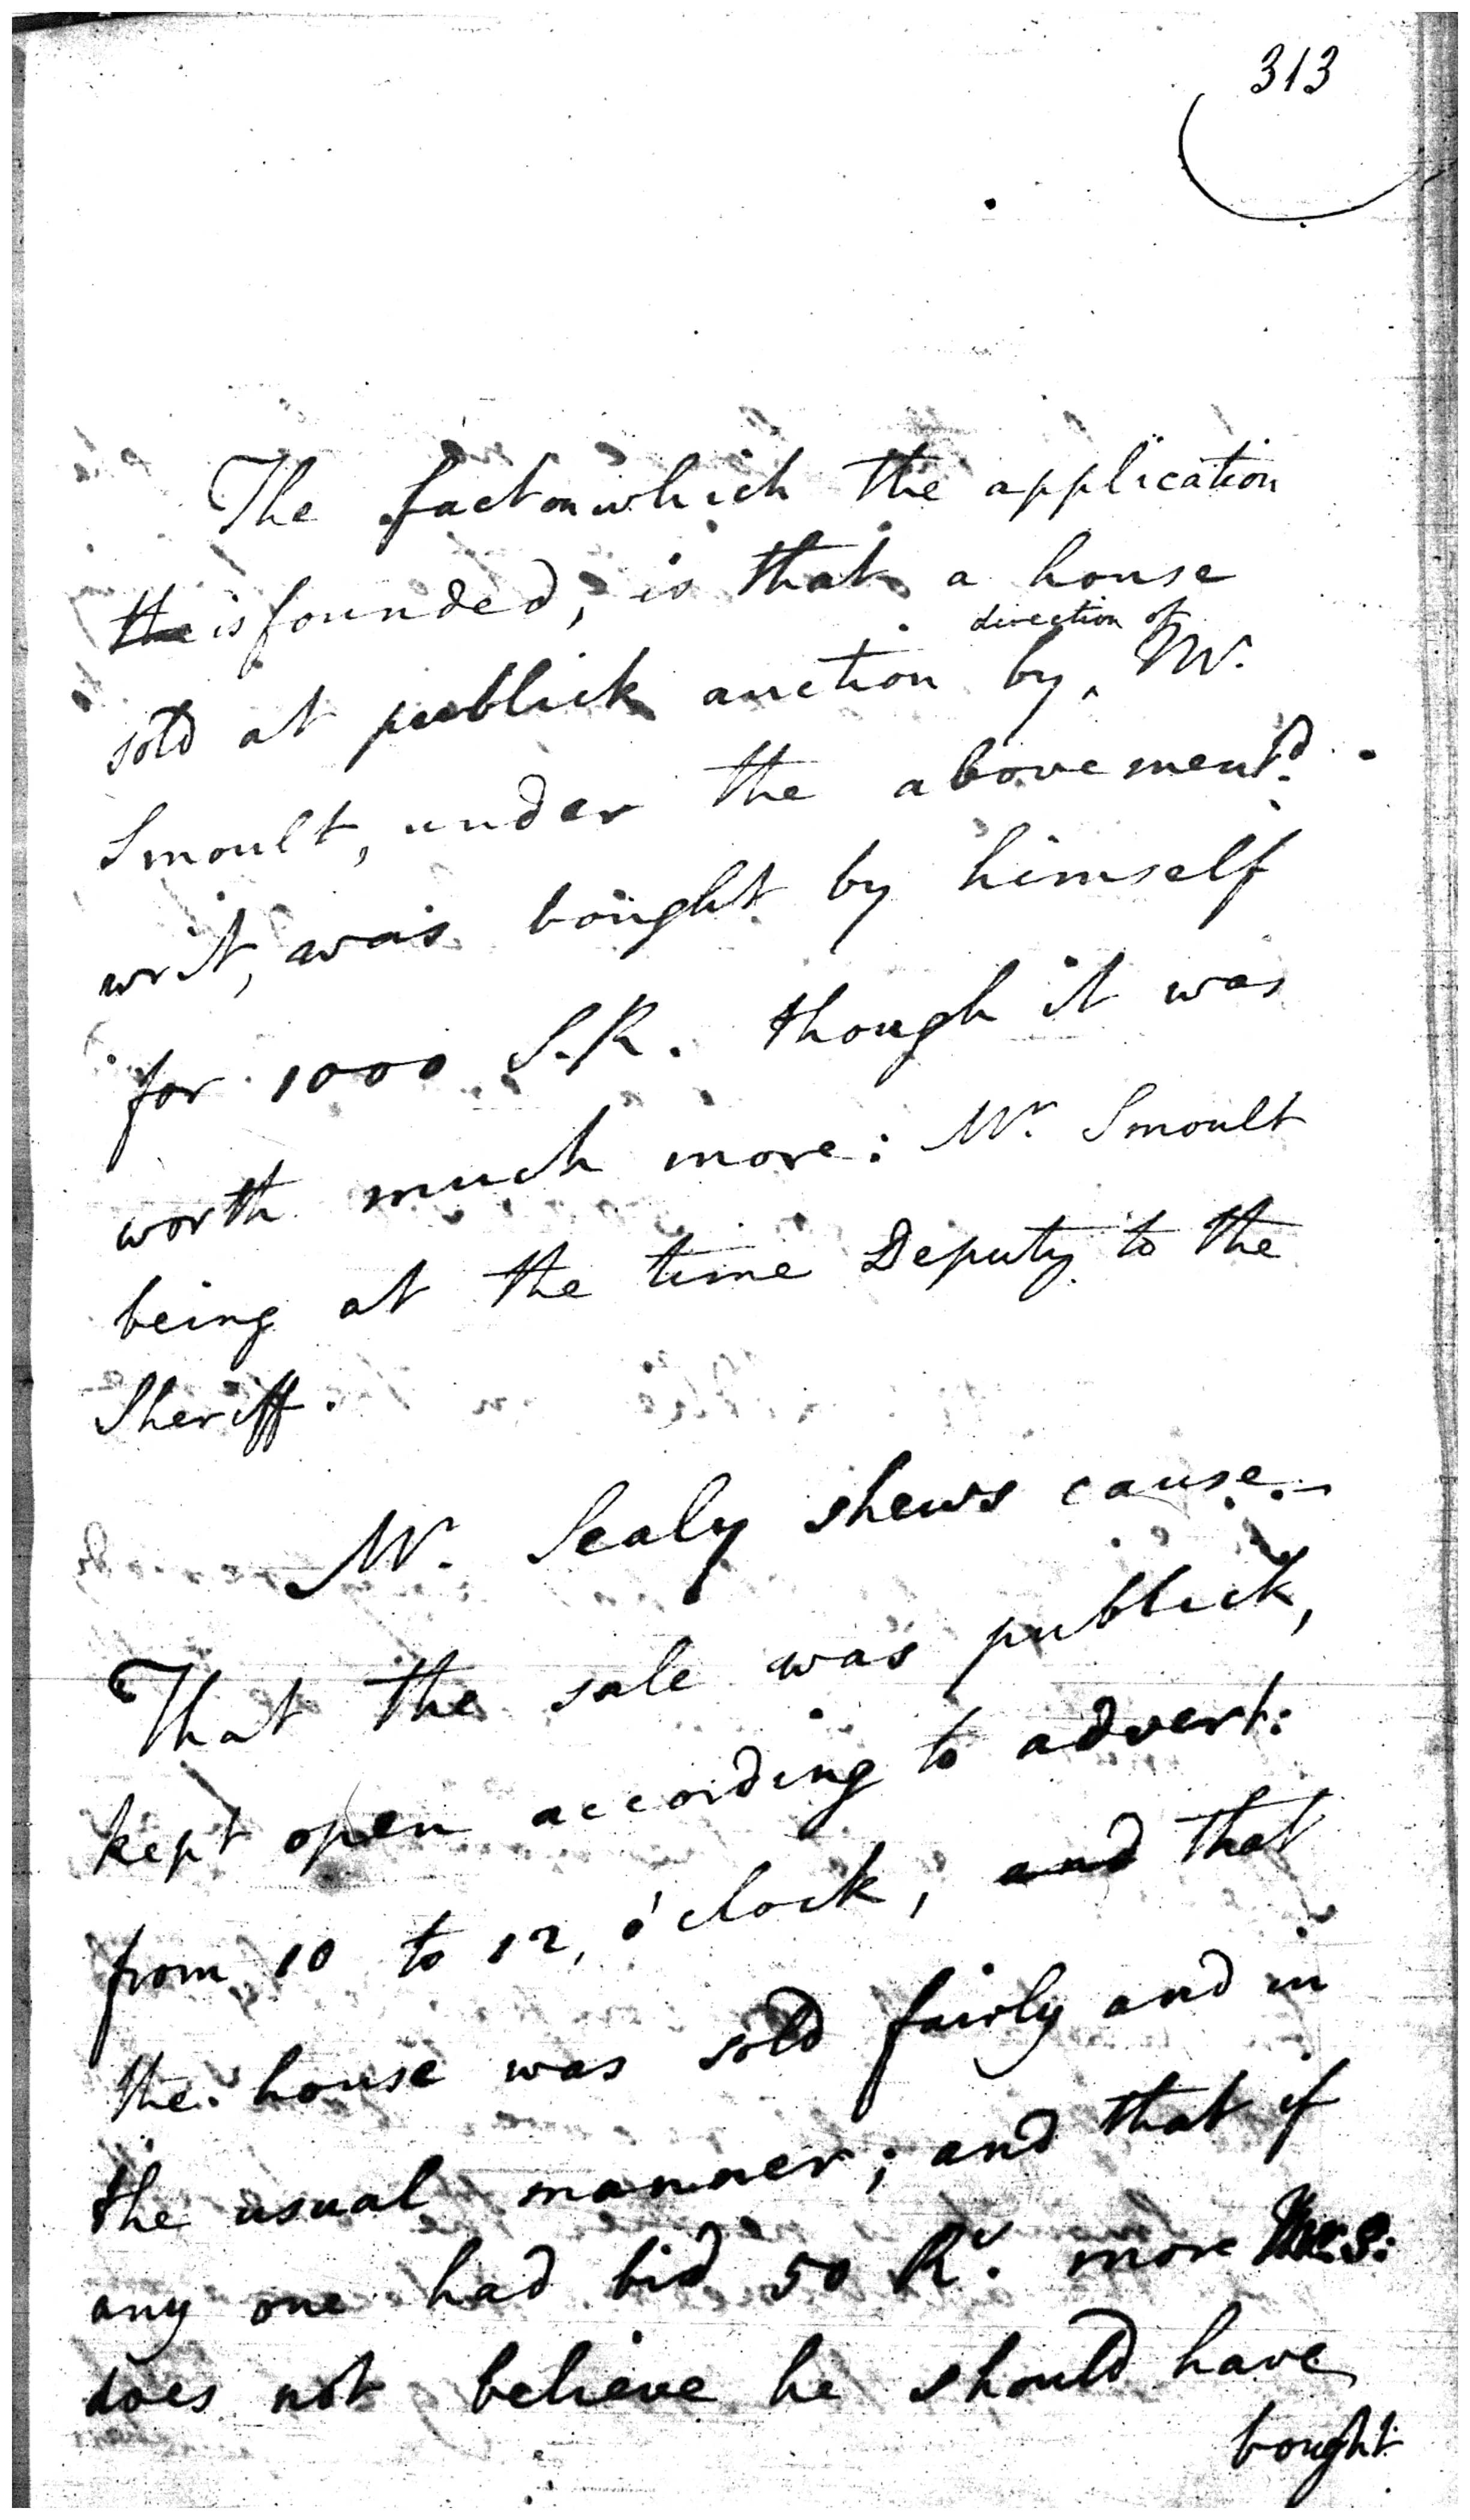 313
The fact on which the application
the is founded, is that a house
direction of
sold at publick auction by ‸ Mr.
Smoult, under the abovementd.
writ, was bought by himself
for 1000 S.R. though it was
worth much more: Mr. Smoult
being at the time Deputy to the
Sheriff.
Mr. Sealy shews cause.
That the sale was publick,
kept open according to advert:
from 10 to 12, o'clock, and that
the house was sold fairly and in
the usual manner; and that if
any one had bid 50 Rs. more Mr. S:
does not believe he should have
bought